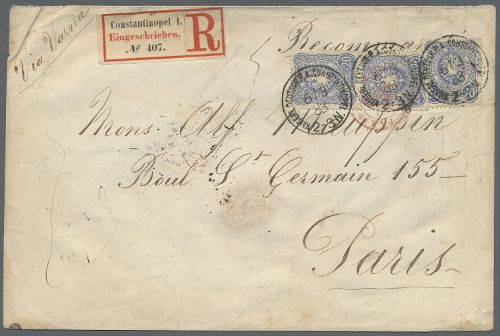 Via Varna
Constantinopel 1.
Eingeschrieben.
№ 407.
R
Recommandé
Mons. Alf
Boul St Germain 155
Paris